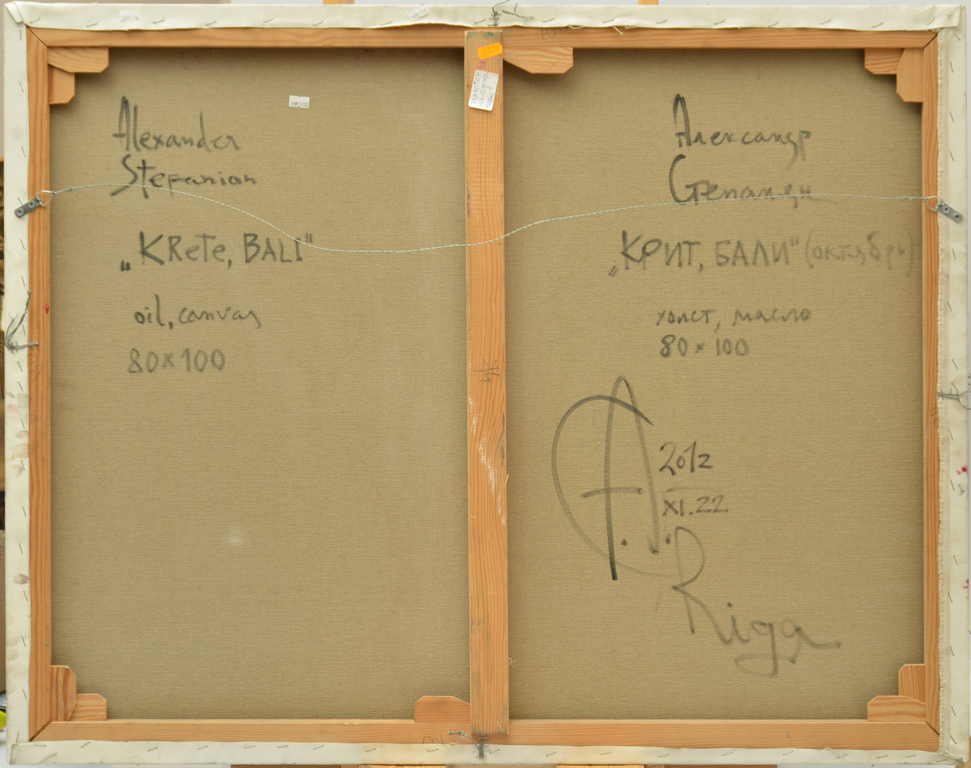 Alexander
Stepanian
„KRETE, BALI"
oil, canvas
80×100
Александр
Степанян
„КРИТ, БАЛИ" (октябрь)
холст, масло
80×100
2012
XI.22
Riga